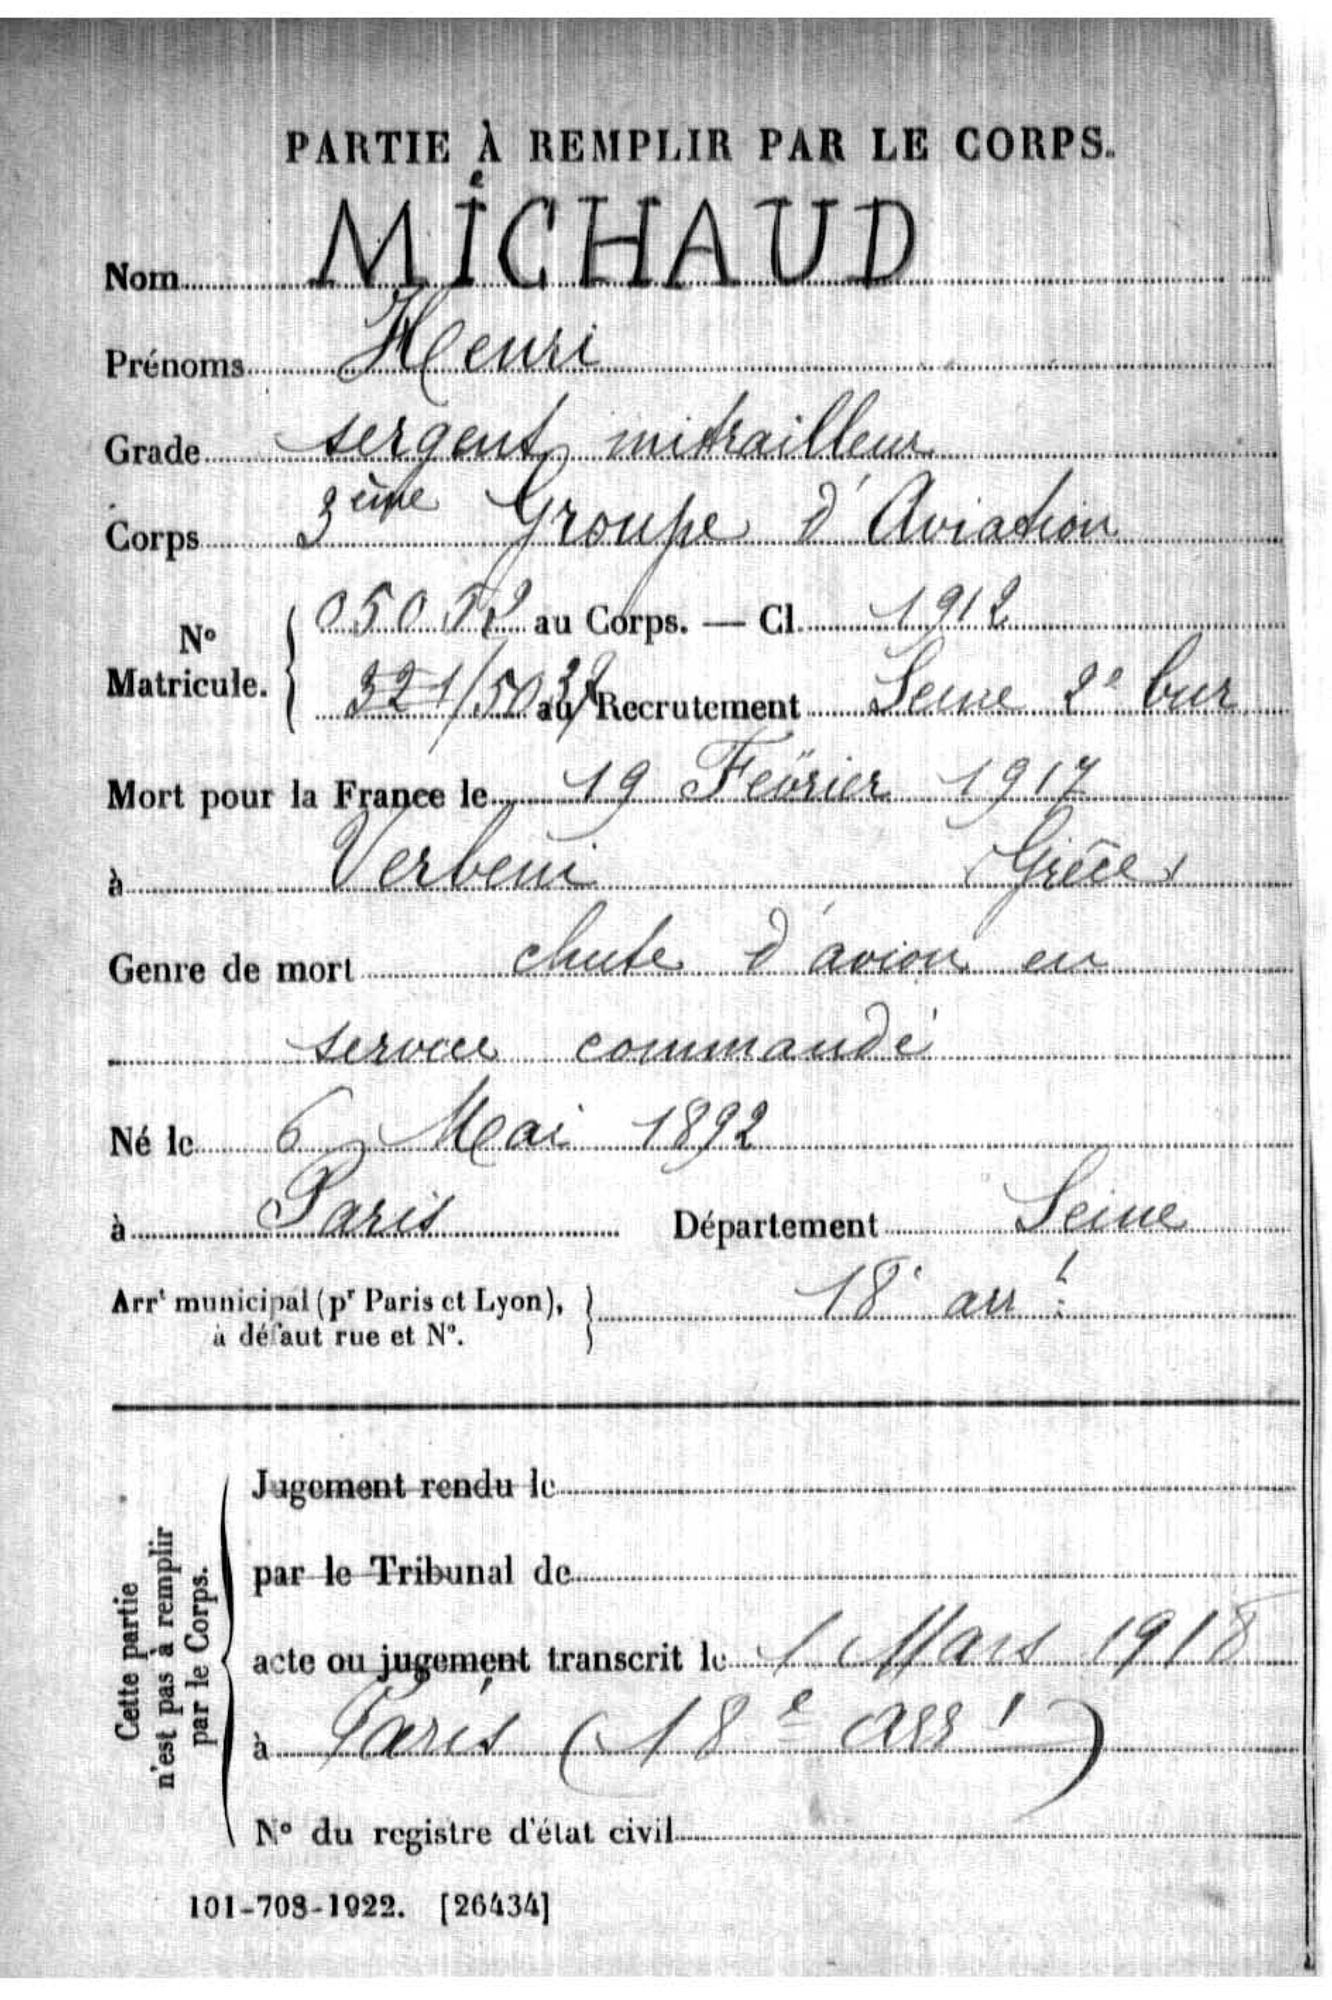 PARTIE À REMPLIR PAR LE CORPS.
Nom MICHAUD
Prénoms Henri
Grade sergent mitrailleur
Corps 3ème Groupe d'Aviation
N° Matricule. { au Corps. — Cl. 1912
321/50 au Recrutement Seine 2e bur
Mort pour la France le 19 Février 1917
à Verbeni (Grèce)
Genre de mort chute d'avion en
service commandé
Né le 6 Mai 1892
à Paris Département Seine
Arrt municipal (pr Paris et Lyon), } 18e arrt
à défaut rue et N°.
Cette partie
n'est pas à remplir
par le Corps.
Jugement rendu le
par le Tribunal de
acte ou jugement transcrit le 1 Mars 1918
à Paris (18e arrt)
N° du registre d'état civil
101-708-1922. [26434]